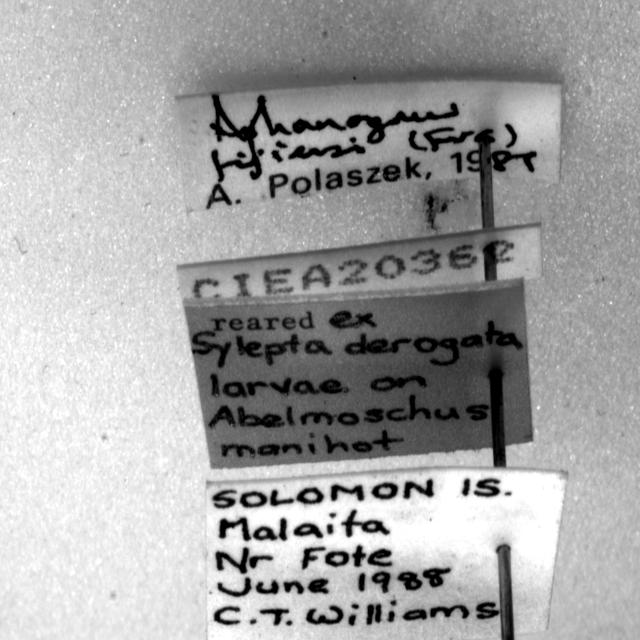 Aphanogmus
fijiensis (Frr)
A. Polaszek, 198
CIEA20362
reared ex
Sylepta derogata
larvae on
Abelmoschus
manihot
SOLOMON IS.
Malaita
Nr Fote
June 1988
C.T. Williams